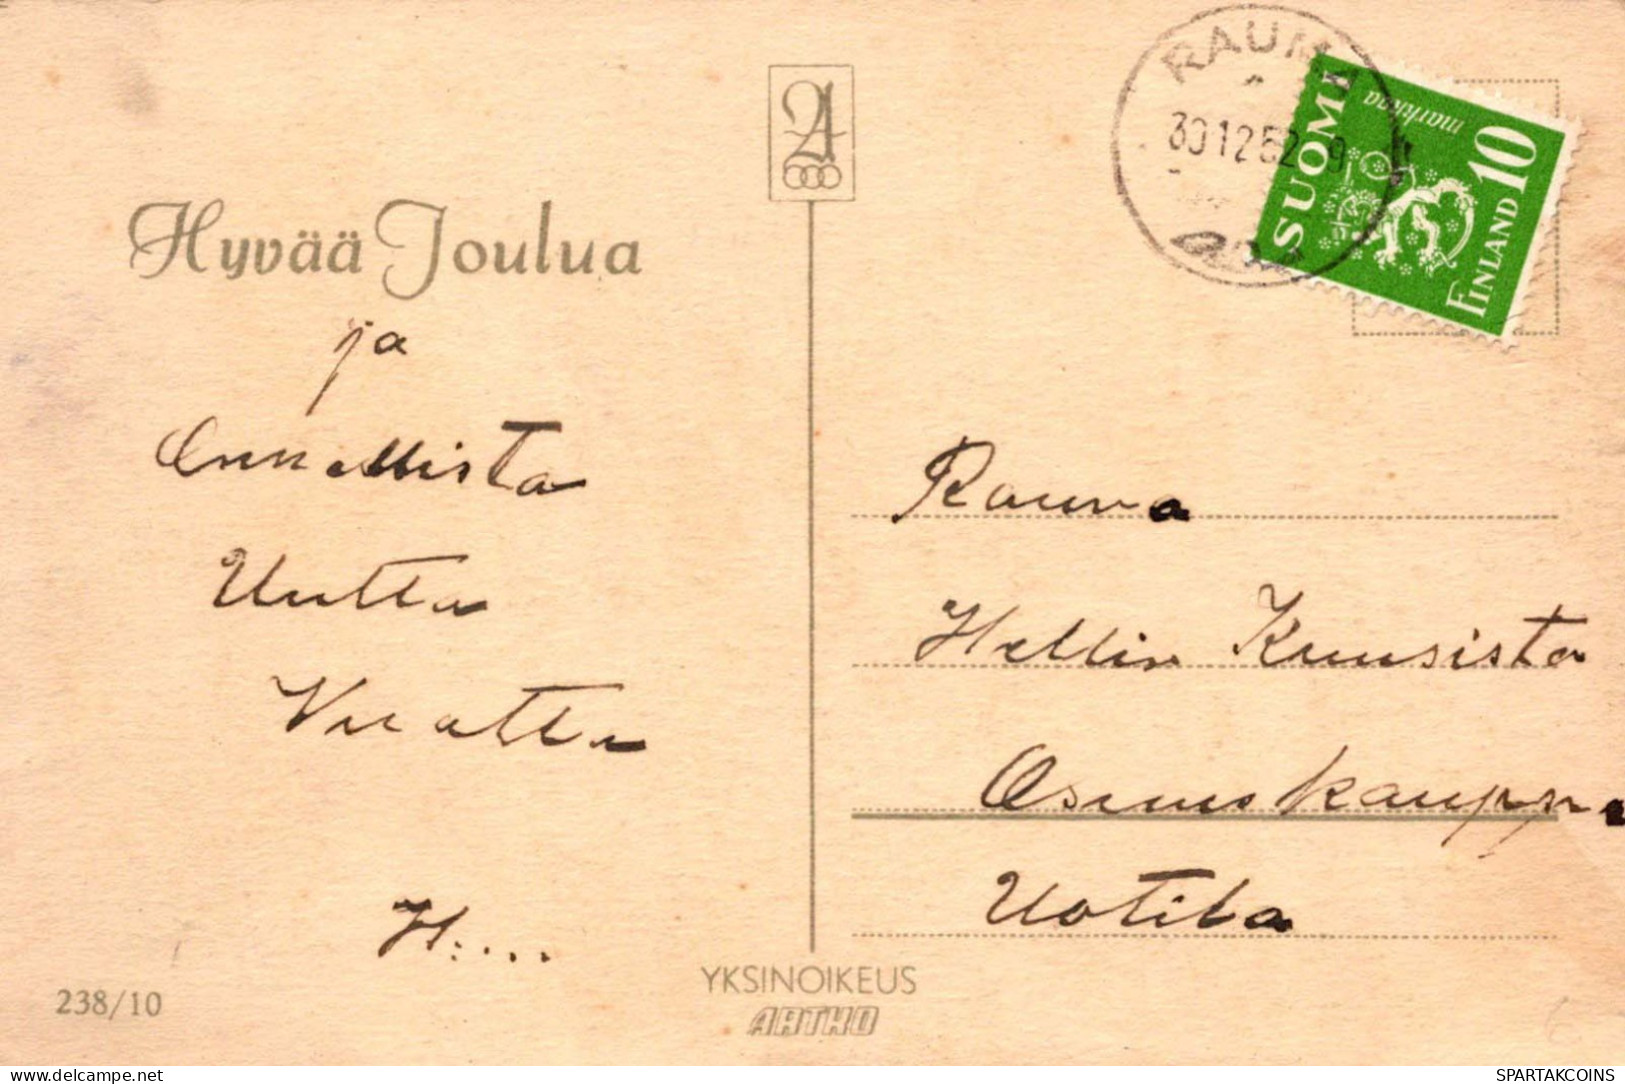 Hyvää Joulua
ja
Onnellista
Uutta
Vuotta
H....
238/10
A
YKSINOIKEUS
AARTKO
RAUMA
30.12.52 9
SUOMI
10 markkaa
FINLAND
Rauva
Hellin Kuusisto
Osuuskauppa
Uotila
www.delcampe.net
SPARTAKCOINS